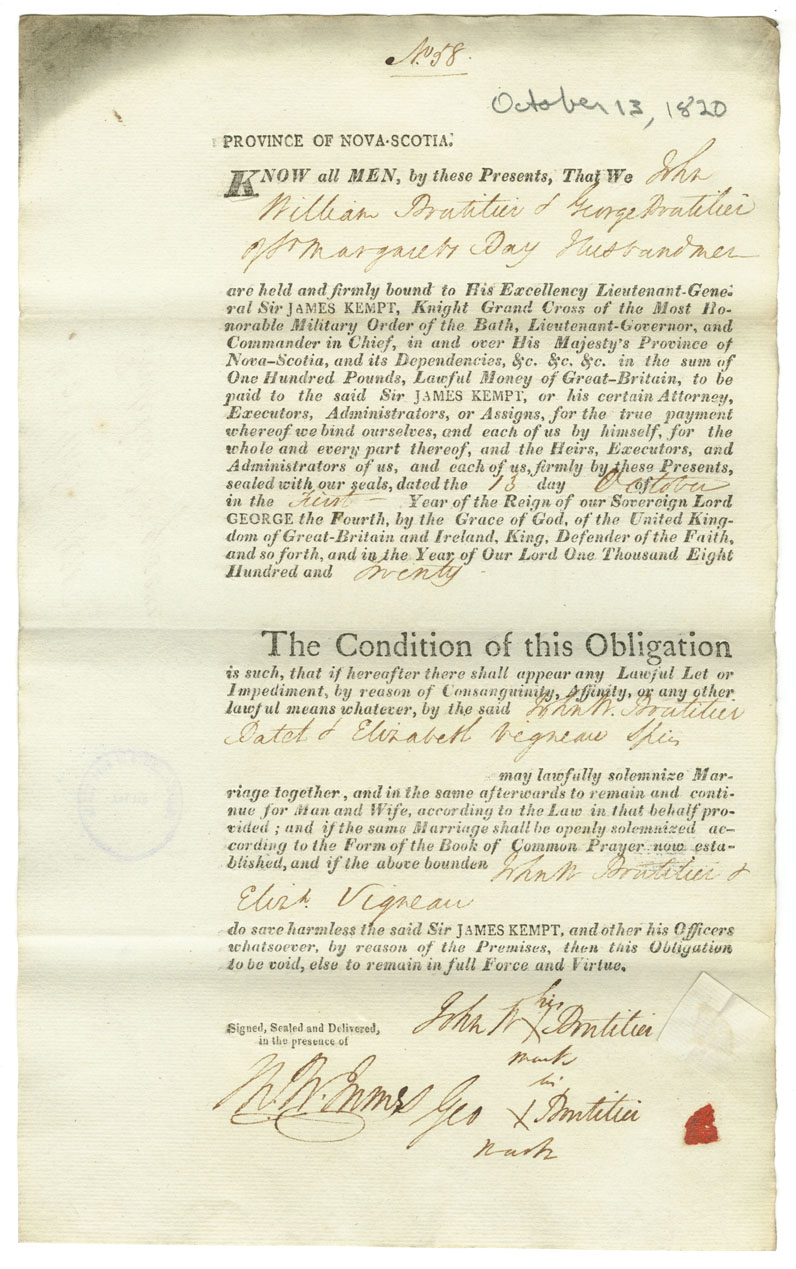 No 58.
October 13, 1820
PROVINCE OF NOVA-SCOTIA.
KNOW all MEN, by these Presents, That We John
William Brutilier & George Brutilier
of St Margarets Bay Husbandmen
are held and firmly bound to His Excellency Lieutenant-Gene-
ral Sir JAMES KEMPT, Knight Grand Cross of the Most Ho-
norable Military Order of the Bath, Lieutenant-Governor, and
Commander in Chief, in and over His Majesty's Province of
Nova-Scotia, and its Dependencies, &c. &c. &c. in the sum of
One Hundred Pounds, Lawful Money of Great-Britain, to be
paid to the said Sir JAMES KEMPT, or his certain Attorney,
Executors, Administrators, or Assigns, for the true payment
whereof we bind ourselves, and each of us by himself, for the
whole and every part thereof, and the Heirs, Executors, and
Administrators of us, and each of us, firmly by these Presents,
sealed with our seals, dated the 13 day of October
in the First Year of the Reign of our Sovereign Lord
GEORGE the Fourth, by the Grace of God, of the United King-
dom of Great-Britain and Ireland, King, Defender of the Faith,
and so forth, and in the Year of Our Lord One Thousand Eight
Hundred and Twenty
The Condition of this Obligation
is such, that if hereafter there shall appear any Lawful Let or
Impediment, by reason of Consanguinity, Affinity, or any other
lawful means whatever, by the said John W. Brutilier
Batch & Elizabeth Vigneau Spin
may lawfully solemnize Mar-
riage together, and in the same afterwards to remain and conti-
nue for Man and Wife, according to the Law in that behalf pro-
vided; and if the same Marriage shall be openly solemnized ac-
cording to the Form of the Book of Common Prayer now esta-
blished, and if the above bounden John W Brutilier &
Elizh. Vigneau
do save harmless the said Sir JAMES KEMPT, and other his Officers
whatsoever, by reason of the Premises, then this Obligation
to be void, else to remain in full Force and Virtue.
Signed, Sealed and Delivered,
in the presence of
his
John W X Brutilier
mark
his
Geo X Brutilier
mark